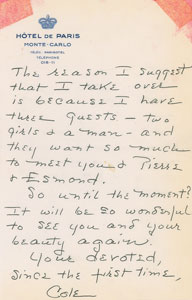 HÔTEL DE PARIS
MONTE-CARLO
TÉLÉPHONE
The reason I suggest
that I take over
is because I have
three guests – two
girls & a man – and
they want so much
to meet you & Pierre
& Esmond.
So until the moment!
It will be so wonderful
to see you and your
beauty again.
Your devoted,
since the first time,
Cole